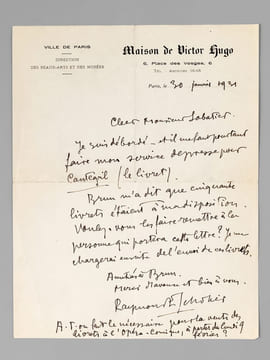 VILLE DE PARIS
DIRECTION
DES BEAUX-ARTS ET DES MUSÉES
Maison de Victor Hugo
6, Place des Vosges, 6
Tél. Archives
Paris, le 30 janvier 1931
Cher Monsieur Sabatier
Je suis débordé – et il me faut pourtant
faire mon service de presse pour
Cantegril (le livret).
Brun m'a dit que cinquante
livrets étaient à ma disposition.
Voulez-vous les faire remettre à la
personne qui portera cette lettre ? Je me
chargerai ensuite de l'envoi de ces livrets.
Amitiés à Brun.
Merci d'avance et bien à vous.
Raymond Escholier
A-t-on fait le nécessaire pour la vente des
livrets à l'Opéra-Comique, à partir de lundi 9
février ?